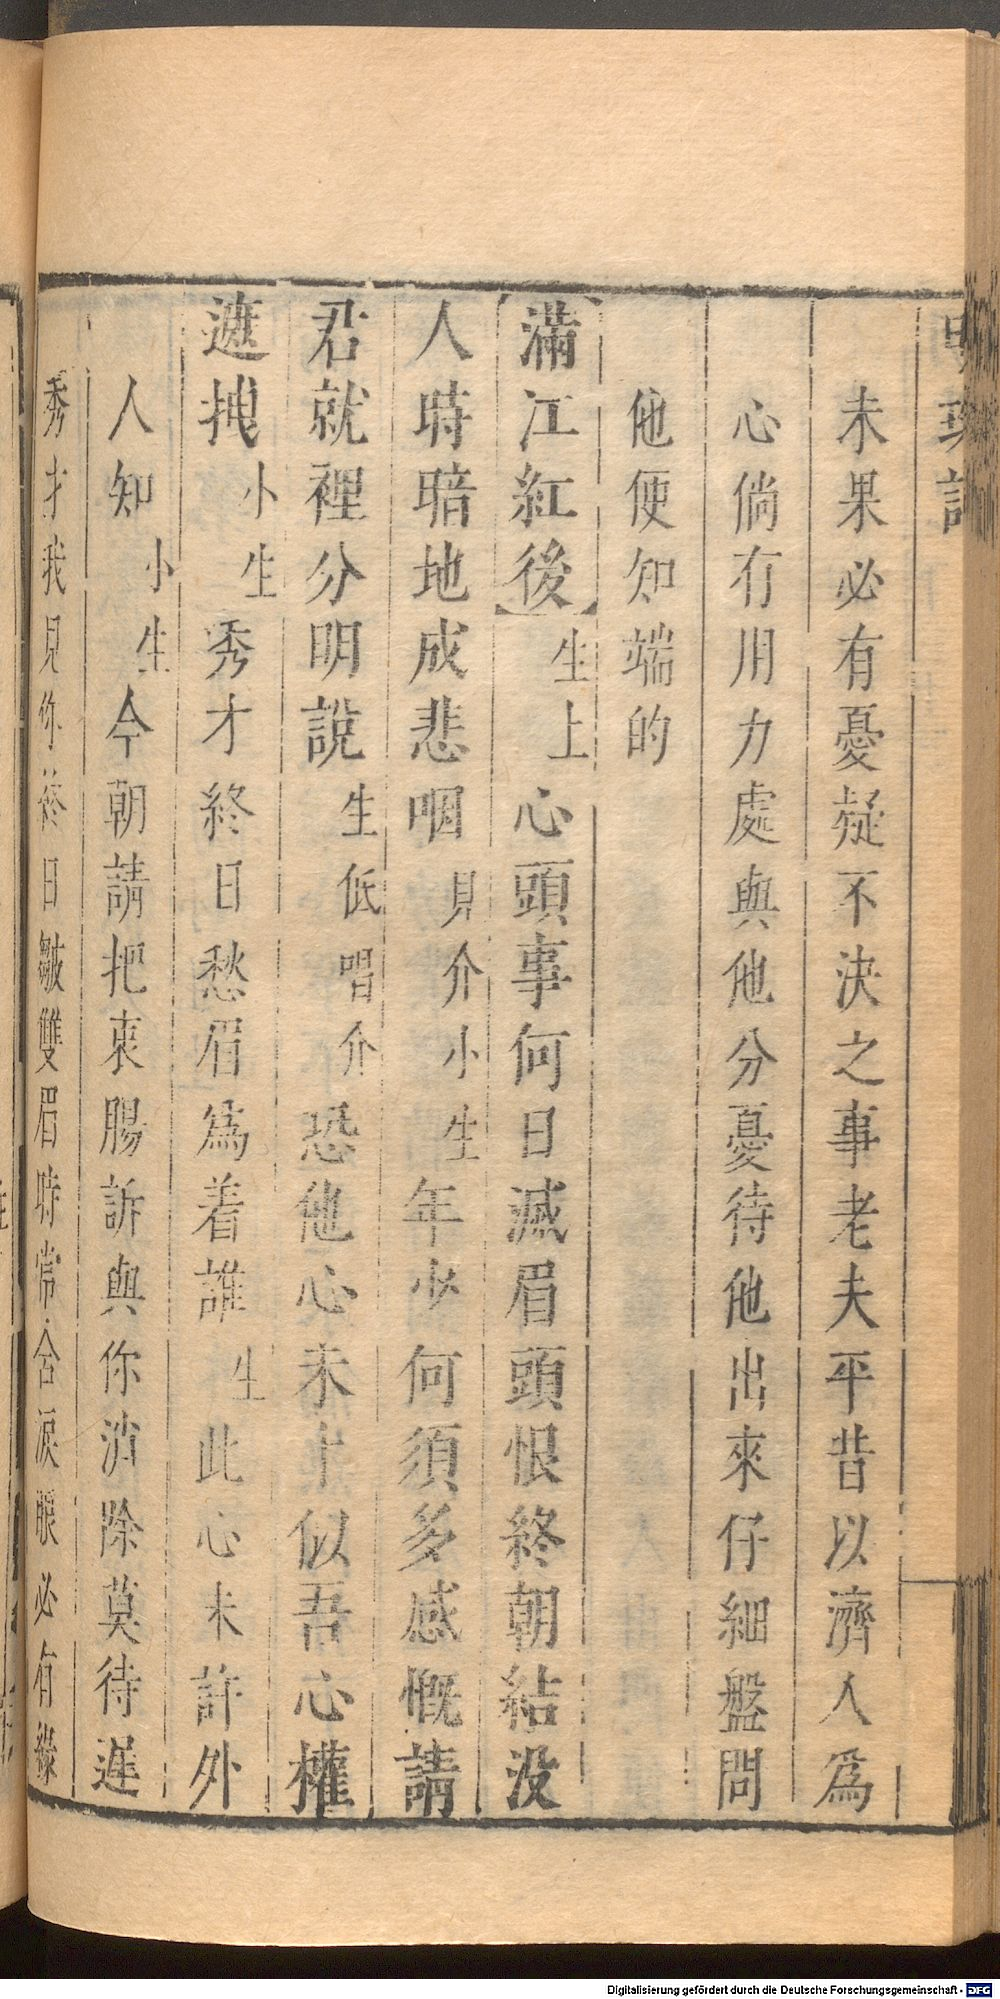 未果必有憂疑不決之事老夫平昔以濟人爲
心倘有用力處與他分憂待他出來仔細盤問
他便知端的
滿江紅後生上心頭事何日滅眉頭恨終朝結没
人時暗地成悲咽見介小生年少何須多感慨請
君就裡分明說生低唱介恐他心未十似吾心權
遮拽小生秀才終日愁眉爲着誰生此心未許外
人知小生今朝請把衷腸訴與你消除莫待遲
秀才我見你終日皺雙眉時常含淚眼必有緣
Digitalisierung gefördert durch die Deutsche Forschungsgemeinschaft - DFG